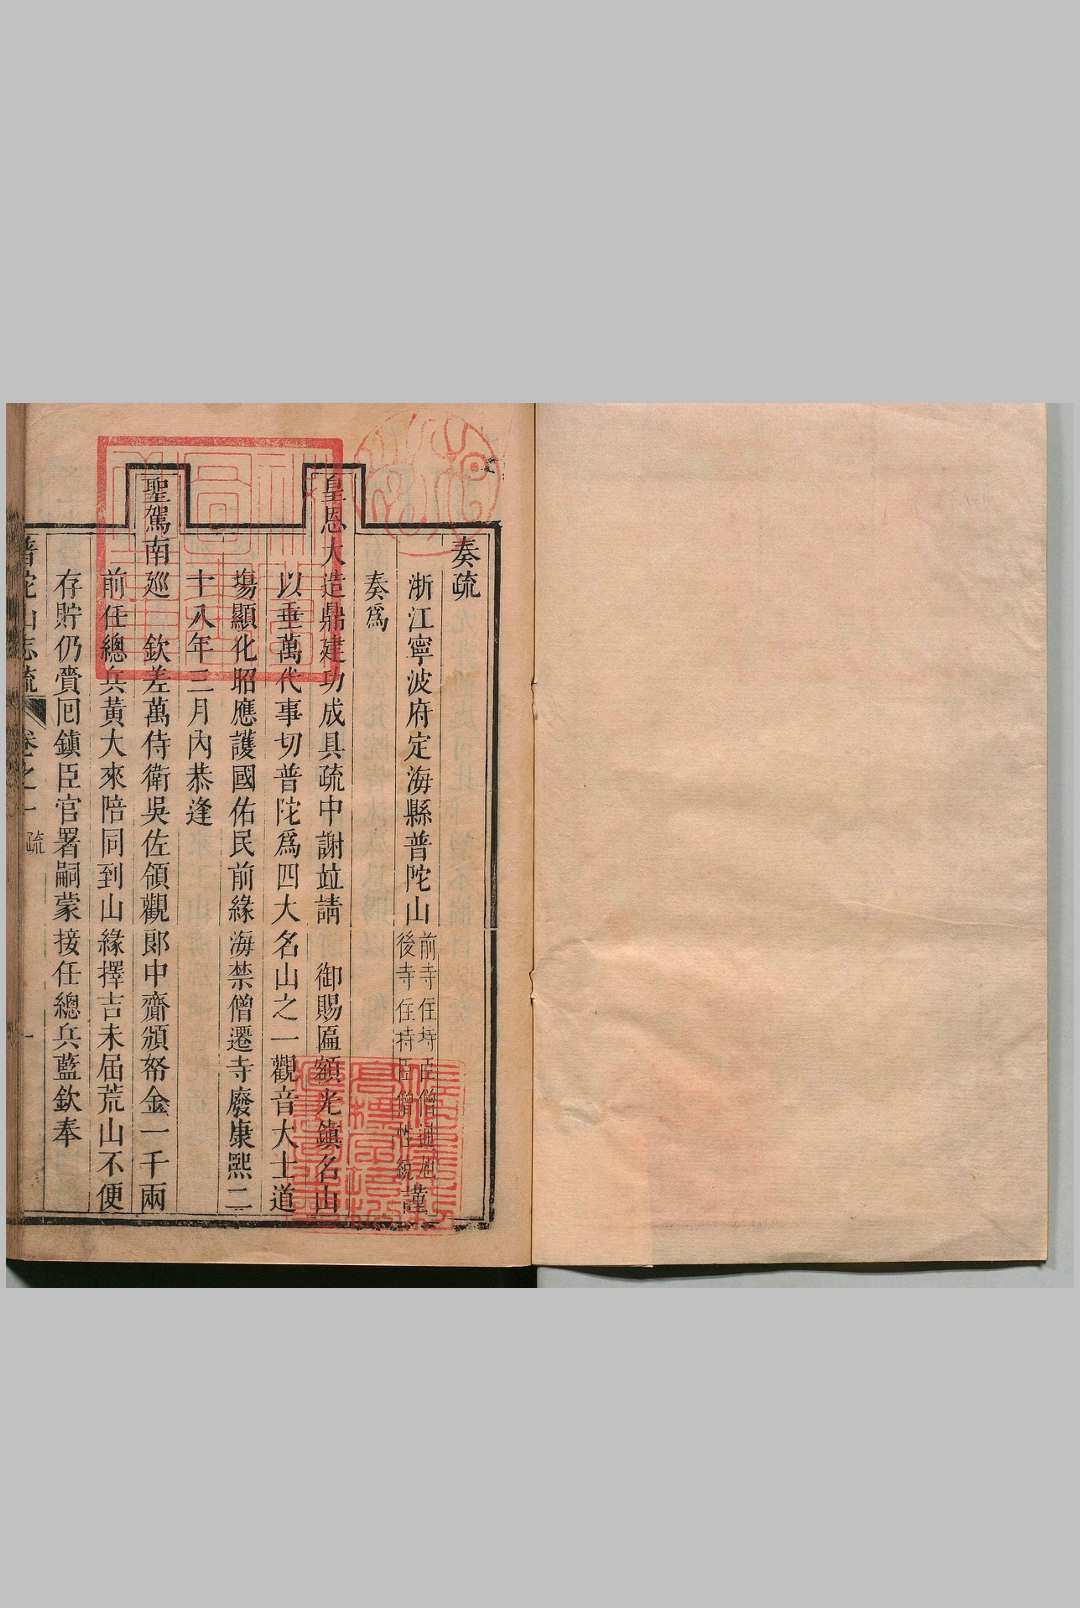 奏疏
浙江寧波府定海縣普陀山前寺住持臣僧通旭後寺住持臣僧性統謹
奏爲
皇恩大造鼎建功成具疏中謝竝請 御賜匾額光鎮名山
以垂萬代事切普陀爲四大名山之一觀音大士道
塲顯化昭應護國佑民前緣海禁僧遷寺廢康熙二
十八年三月內恭逢
聖駕南廵 欽差萬侍衛吳佐領觀郎中齎頒帑金一千兩
前任總兵黃大來陪同到山緣擇吉未届荒山不便
存貯仍賷囘鎮臣官署嗣蒙接任總兵藍欽奉
普陀山志疏 卷之一 疏 一